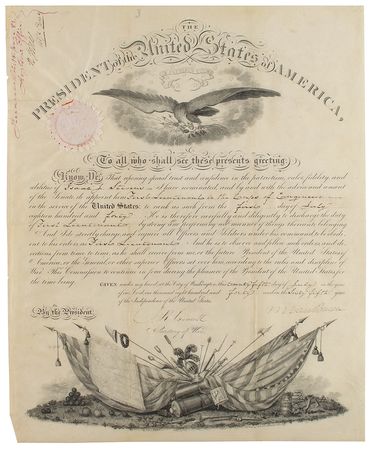 THE
PRESIDENT of the United States of AMERICA,
To all who shall see these presents greeting:
Know Ye, That reposing special trust and confidence in the patriotism, valor, fidelity, and
abilities of Isaac I. Stevens I have nominated, and by and with the advice and consent
of the Senate do appoint him First Lieutenant in the Corps of Engineers
in the service of the United States: to rank as such from the first day of July
eighteen hundred and forty. He is therefore carefully and diligently to discharge the duty
of First Lieutenant by doing and performing all manner of things thereunto belonging.
And I do strictly charge, and require all Officers and Soldiers under his command to be obedient
to his orders as First Lieutenant. And he is to observe and follow such orders, and di-
rections from time to time, as he shall receive from me, or the future President of the United States of
America, or the General, or other superior Officers set over him, according to the rules and discipline of
War. This Commission to continue in force during the pleasure of the President of the United States, for
the time being.
GIVEN under my hand at the City of Washington, this twenty fifth day of July in the
year of our Lord one thousand eight hundred and forty and in the sixty fifth year
of the Independence of the United States.
By the President,
M Van Buren
Secretary of War.